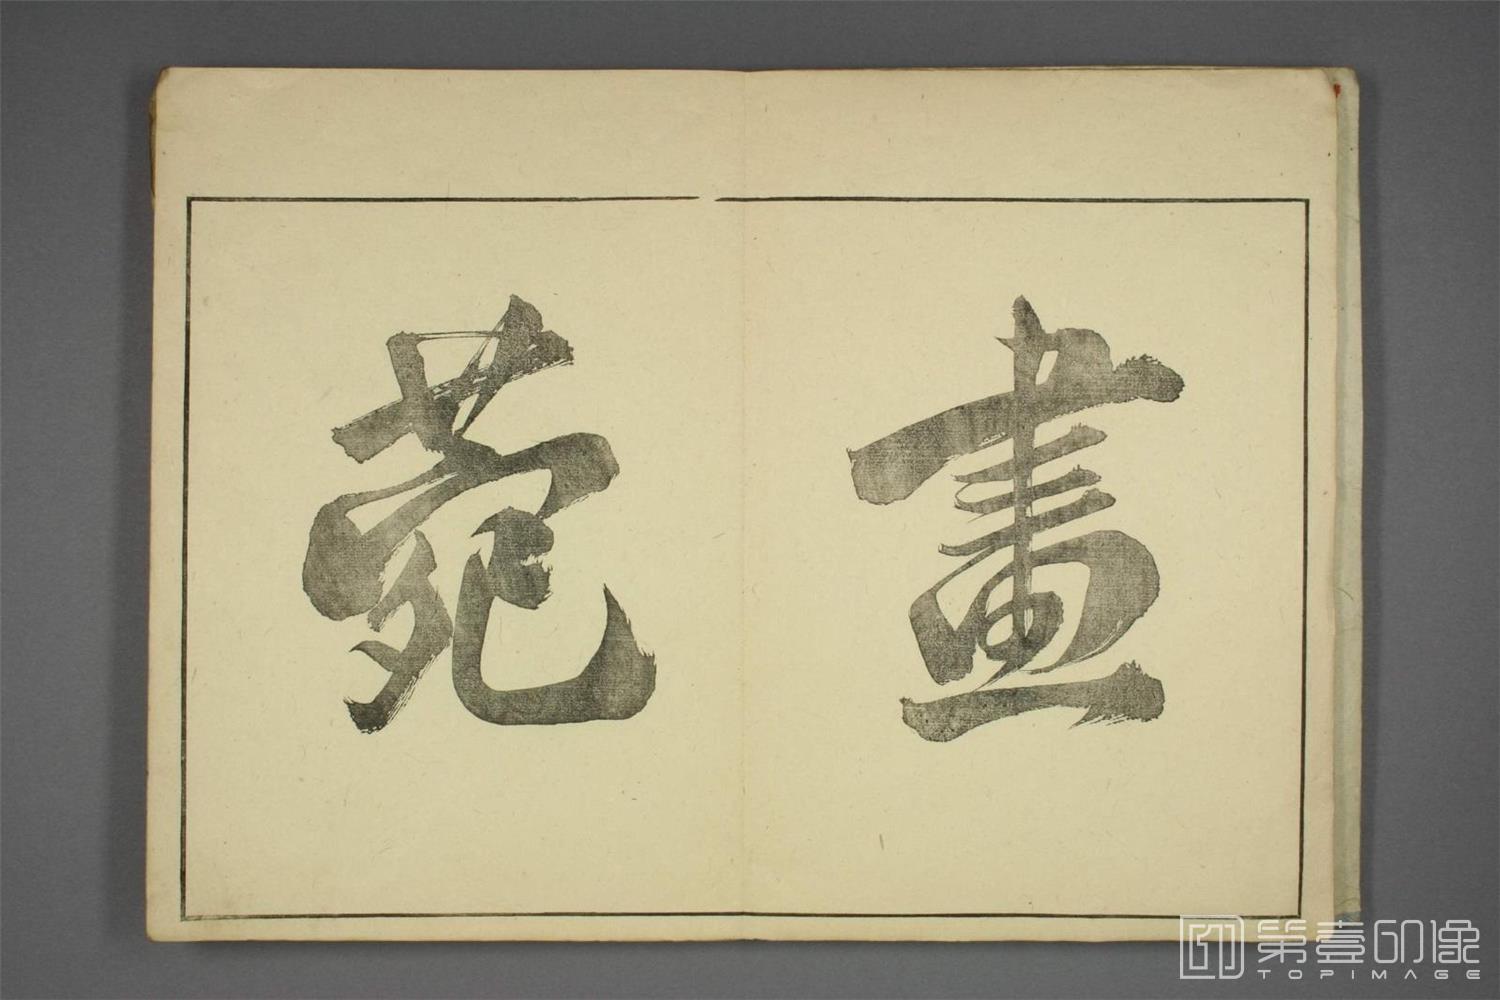 畫苑
第壹印像
TOPIMAGE